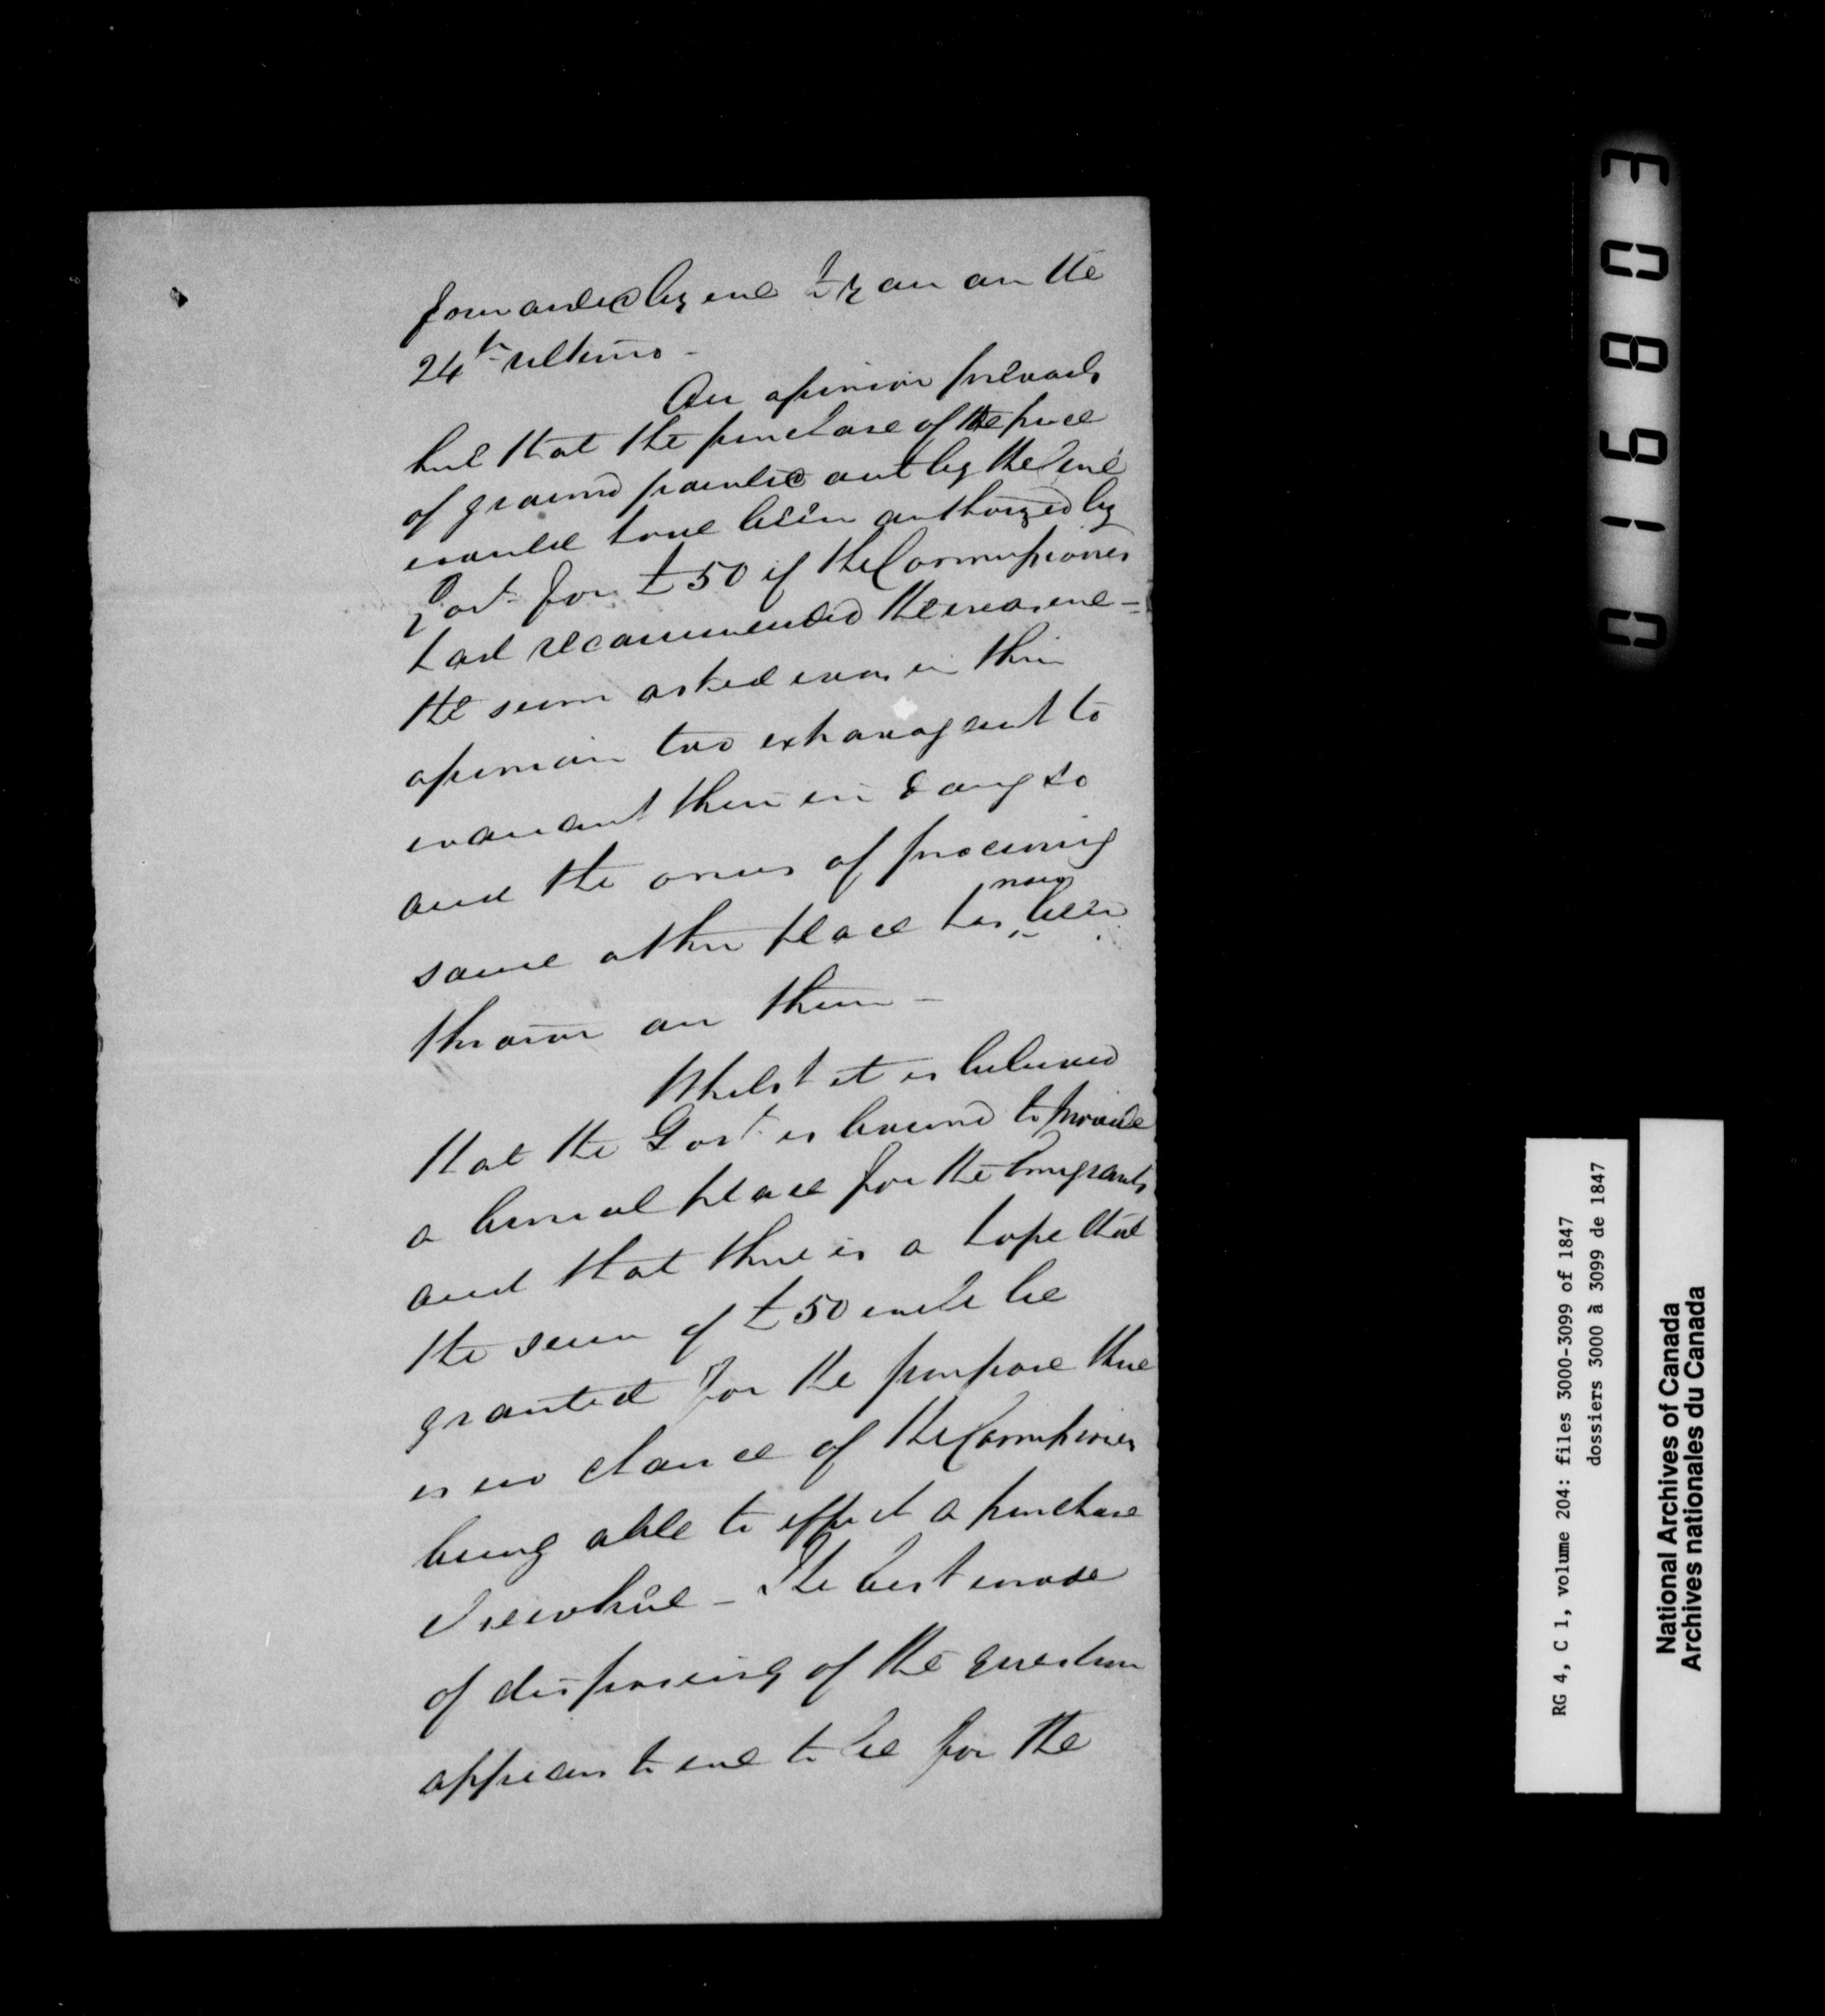 forwarded by me to you on the
24th ultimo -
An opinion prevails
but that the purchase of the piece
of ground pointed out by the
would have been authorized by
Govt for £50 if the Commissioners
had recommended the measure -
the sum asked was in their
opinion too extravagant to
warrant them in doing so
and the onus of procuring
some other place has now been
thrown on them -
Whilst it is believed
that the Govt is bound to provide
a burial place for the Emigrants
and that there is a hope that
the sum of £50 will be
granted for the purpose there
is no chance of the Commissioners
being able to effect a purchase
elsewhere - The best mode
of disposing of the question
appears to me to be for the
016803
RG 4, C 1, volume 204: files 3000-3099 of 1847
dossiers 3000 à 3099 de 1847
National Archives of Canada
Archives nationales du Canada